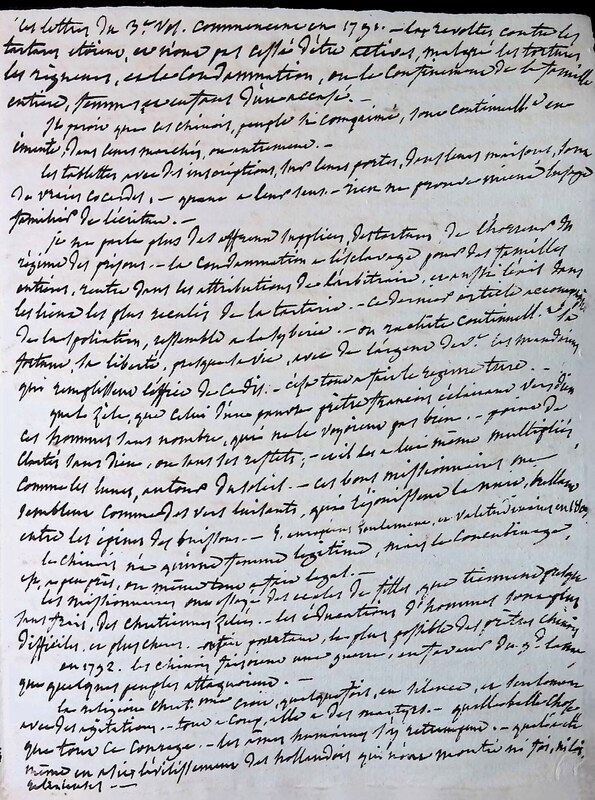 les lettres du 3e Vol. commencent en 1790. - les revoltes contre les
tartares etoient, et n'ont pas cessé d'être actives, malgré les tortures,
les rigueurs, et la Condamnation, ou le Confinement de la famille
entiere, femmes et enfans d'un accusé. -
je vois que ces chinois, peuple si comprimé, sont continuellt en
émeute, dans leurs marchés, ou autrement. -
les tablettes avec des inscriptions, sur leurs portes, dans leurs maisons, sont
de vraies cocardes, - quant a leur sens. - rien ne prouve mieux l'usage
familier de l'écriture. -
je ne parle plus des affreux supplices, des tortures, de l'horreur du
régime des prisons. - la Condamnation a l'esclavage pour des familles
entieres, rentre dans les attributions de l'arbitraire, et aussi l'exil dans
les lieux les plus reculés de la tartarie. - ce dernier article accompagné
de la spoliation, ressemble a la Syberie. - on rachete continuellt a sa
fortune sa liberté, presque sa vie, avec de l'argent devt les mandarins
qui remplissent l'office de Cadis. - c'est tout a fait le regime turc. -
quel zèle, que celui d'un pauvre prêtre français éclairant vers Dieu
ces hommes sans nombre, qui ne le voyoient pas bien. - point de
clartés sans Dieu, ou sans ses reflets; - et il les a lui même multipliés
comme les lunes, autour du soleil. - ces bons missionnaires me
semblent comme des vers luisants, qui réjouissent la nuit, brillant
entre les épines des buissons. - européens seulement, et valetudinaires en
le chinois n'a qu'une femme legitime, mais le Concubinage,
est, a peu près, ou même tout a fait legal. -
les missionnaires, ont essayé des écoles de filles, que tiennent presque
sans frais, des chretiennes zélées. - les éducations d'hommes sont plus
difficiles, et plus cheres. on fait pourtant, le plus possible des prêtres chinois
en 1792. les chinois faisoient une guerre, en faveur du gd lama
que quelques peuples attaquoient. -
la religion chretne croît, quelquefois, en silence, et seulement
avec des agitations. - tout a coup, elle a des martyrs. - quelle belle chose
que tout ce courage. - les âmes humaines s'y retrempent. - quel a été
même en asie l'avilissement des hollandois qui n'ont montré ni foi, ni loi,